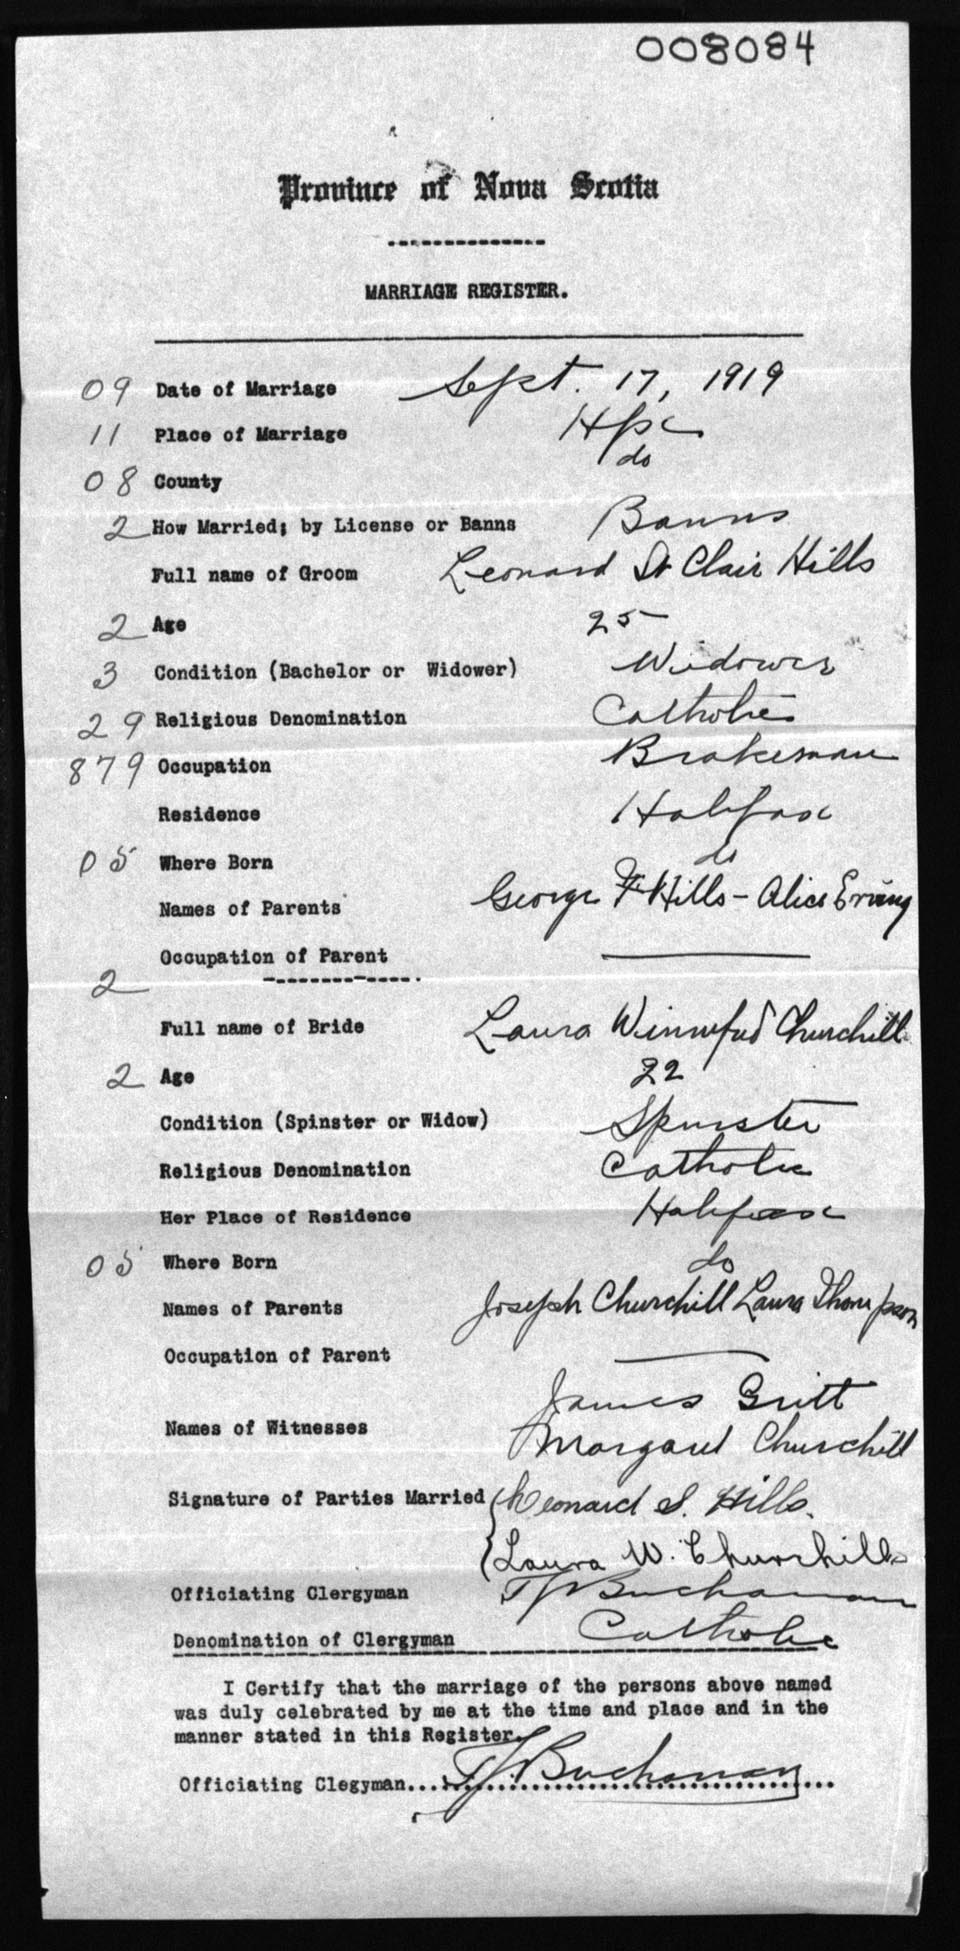 008084
Province of Nova Scotia
MARRIAGE REGISTER.
09 Date of Marriage Sept. 17, 1919
11 Place of Marriage Hfx
08 County do
2 How Married; by License or Banns Banns
Full name of Groom Leonard St Clair Hills
2 Age 25
3 Condition (Bachelor or Widower) Widower
29 Religious Denomination Catholic
879 Occupation Brakeman
Residence Halifax
05 Where Born do
Names of Parents George F Hills - Alice Erving
Occupation of Parent
2
Full name of Bride Laura Winnifud Churchill
2 Age 22
Condition (Spinster or Widow) Spinster
Religious Denomination Catholic
Her Place of Residence Halifax
05 Where Born do
Names of Parents Joseph Churchill Laura Thompson
Occupation of Parent
James Gritt
Names of Witnesses Margaret Churchill
Signature of Parties Married Leonard S. Hills.
Laura W. Churchill
Officiating Clergyman TJ Buchanan
Denomination of Clergyman Catholic
I Certify that the marriage of the persons above named
was duly celebrated by me at the time and place and in the
manner stated in this Register.
Officiating Clegyman.... TJ Buchanan